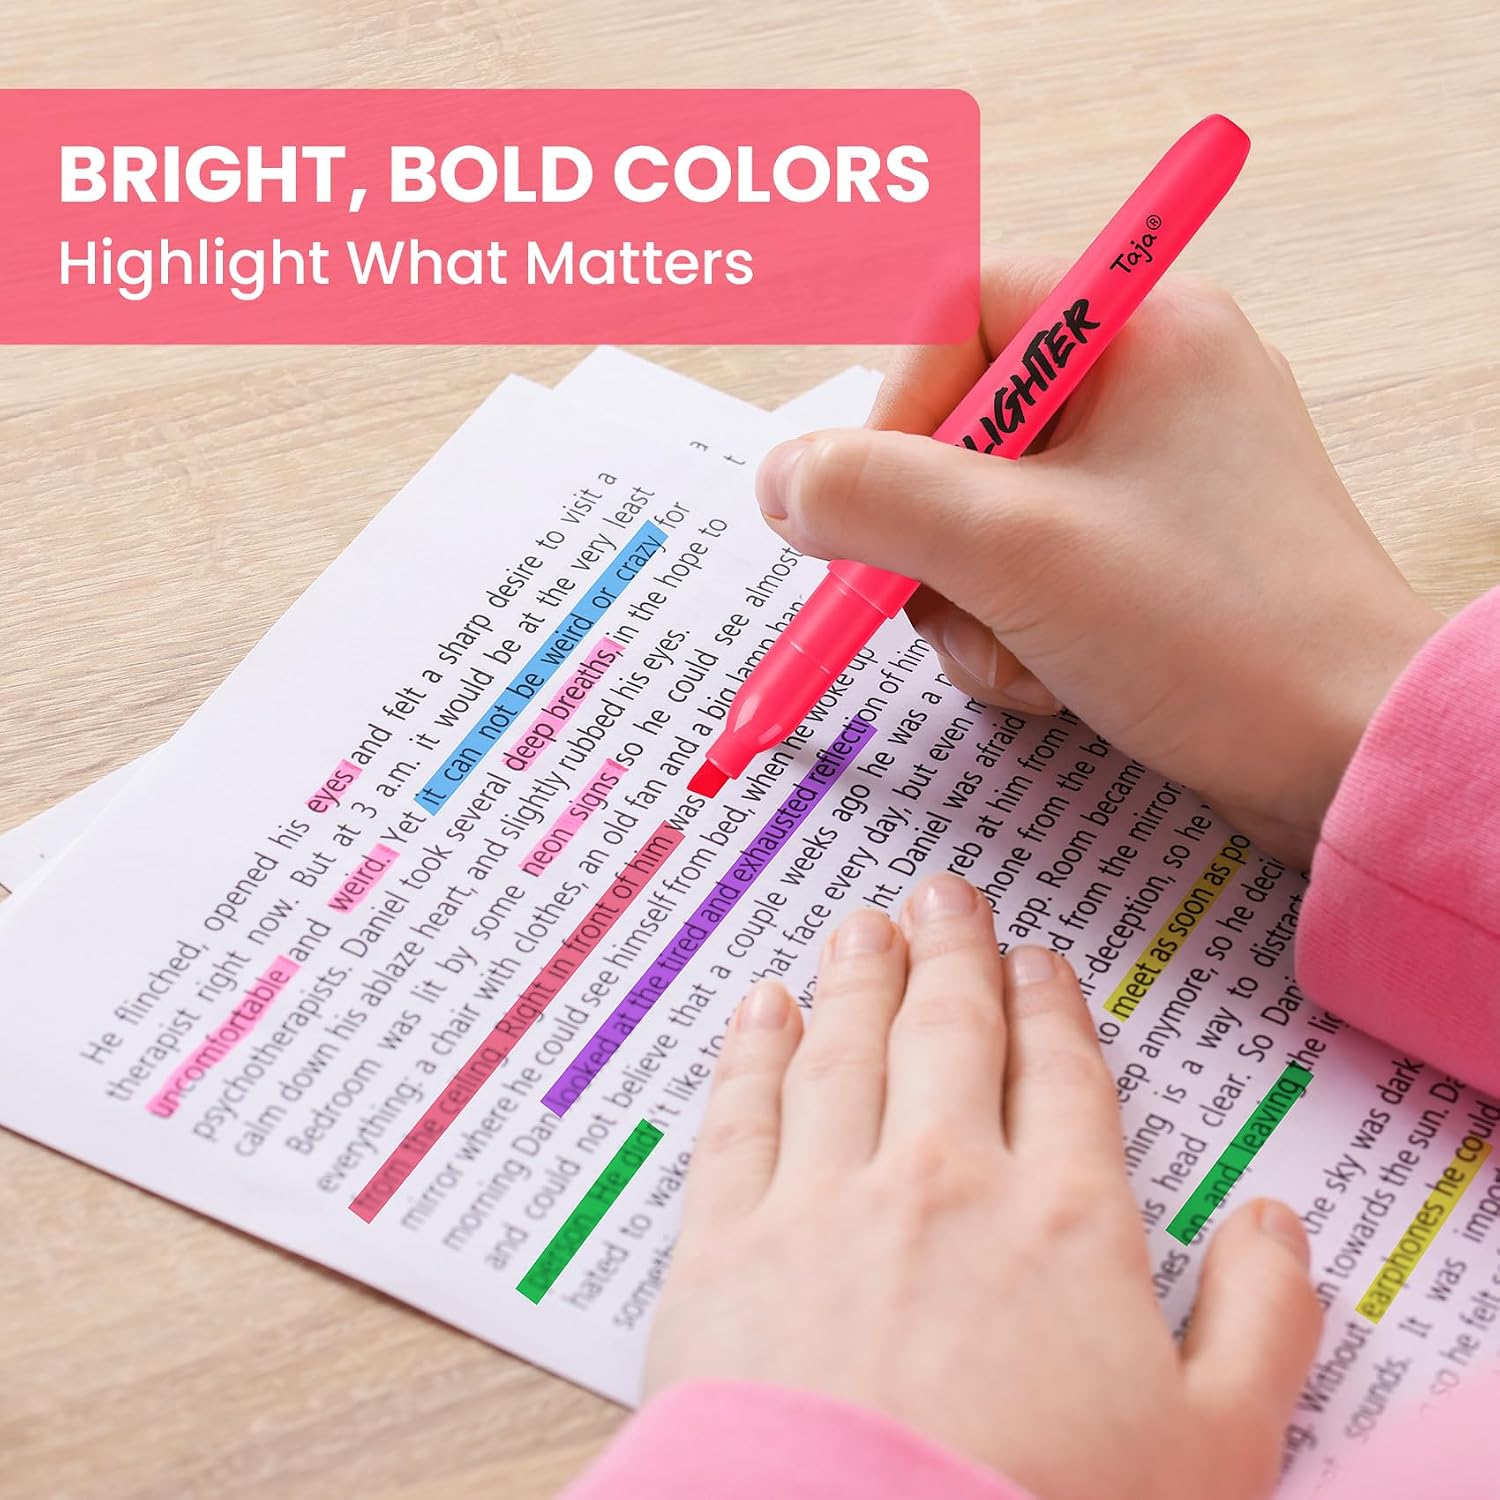 BRIGHT, BOLD COLORS
Highlight What Matters
Taja®
LIGHTER
3
t
He flinched, opened his eyes and felt a sharp desire to visit a
therapist right now. But at 3 a.m. it would be at the very least
uncomfortable and weird. Yet it can not be weird or crazy for
psychotherapists. Daniel took several deep breaths, in the hope to
calm down his ablaze heart, and slightly rubbed his eyes.
Bedroom was lit by some neon signs so he could see almost
everything: a chair with clothes, an old fan and a big lamp
from the ceiling. Right in front of him was
mirror where he could see himself from bed, when he woke up
morning Dan looked at the tired and exhausted reflection of him
and could not believe that a couple weeks ago he was a
person. He didn't like to that face every day, but even
hated to wake ht. Daniel was afraid
somethi reb at him from
phone from the be
app. Room becam
ed from the mirror
r-deception, so he
to meet as soon as po
eep anymore, so he deci
ning is a way to distract
is head clear. So Dani
nes on and leaving the lig
the sky was dark
n towards the sun. Da
ng. Without earphones he could
sounds. It was import
so he felt